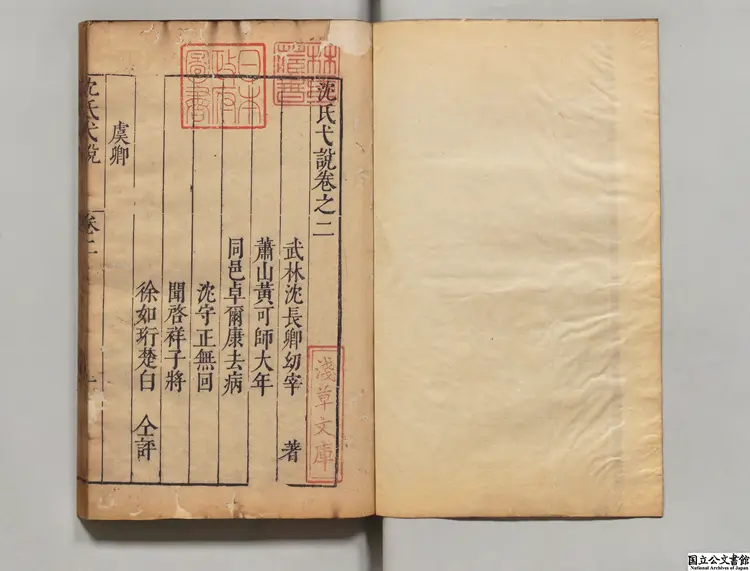 沈氏弋說卷之二
武林沈長卿幼宰 著
蕭山黃可師大年
同邑卓爾康去病
沈守正無回
聞啓祥子將
徐如珩楚白 仝評
虞卿
沈氏弋說 卷二 一
日本
政府
圖書
淺草文庫
国立公文書館
National Archives of Japan